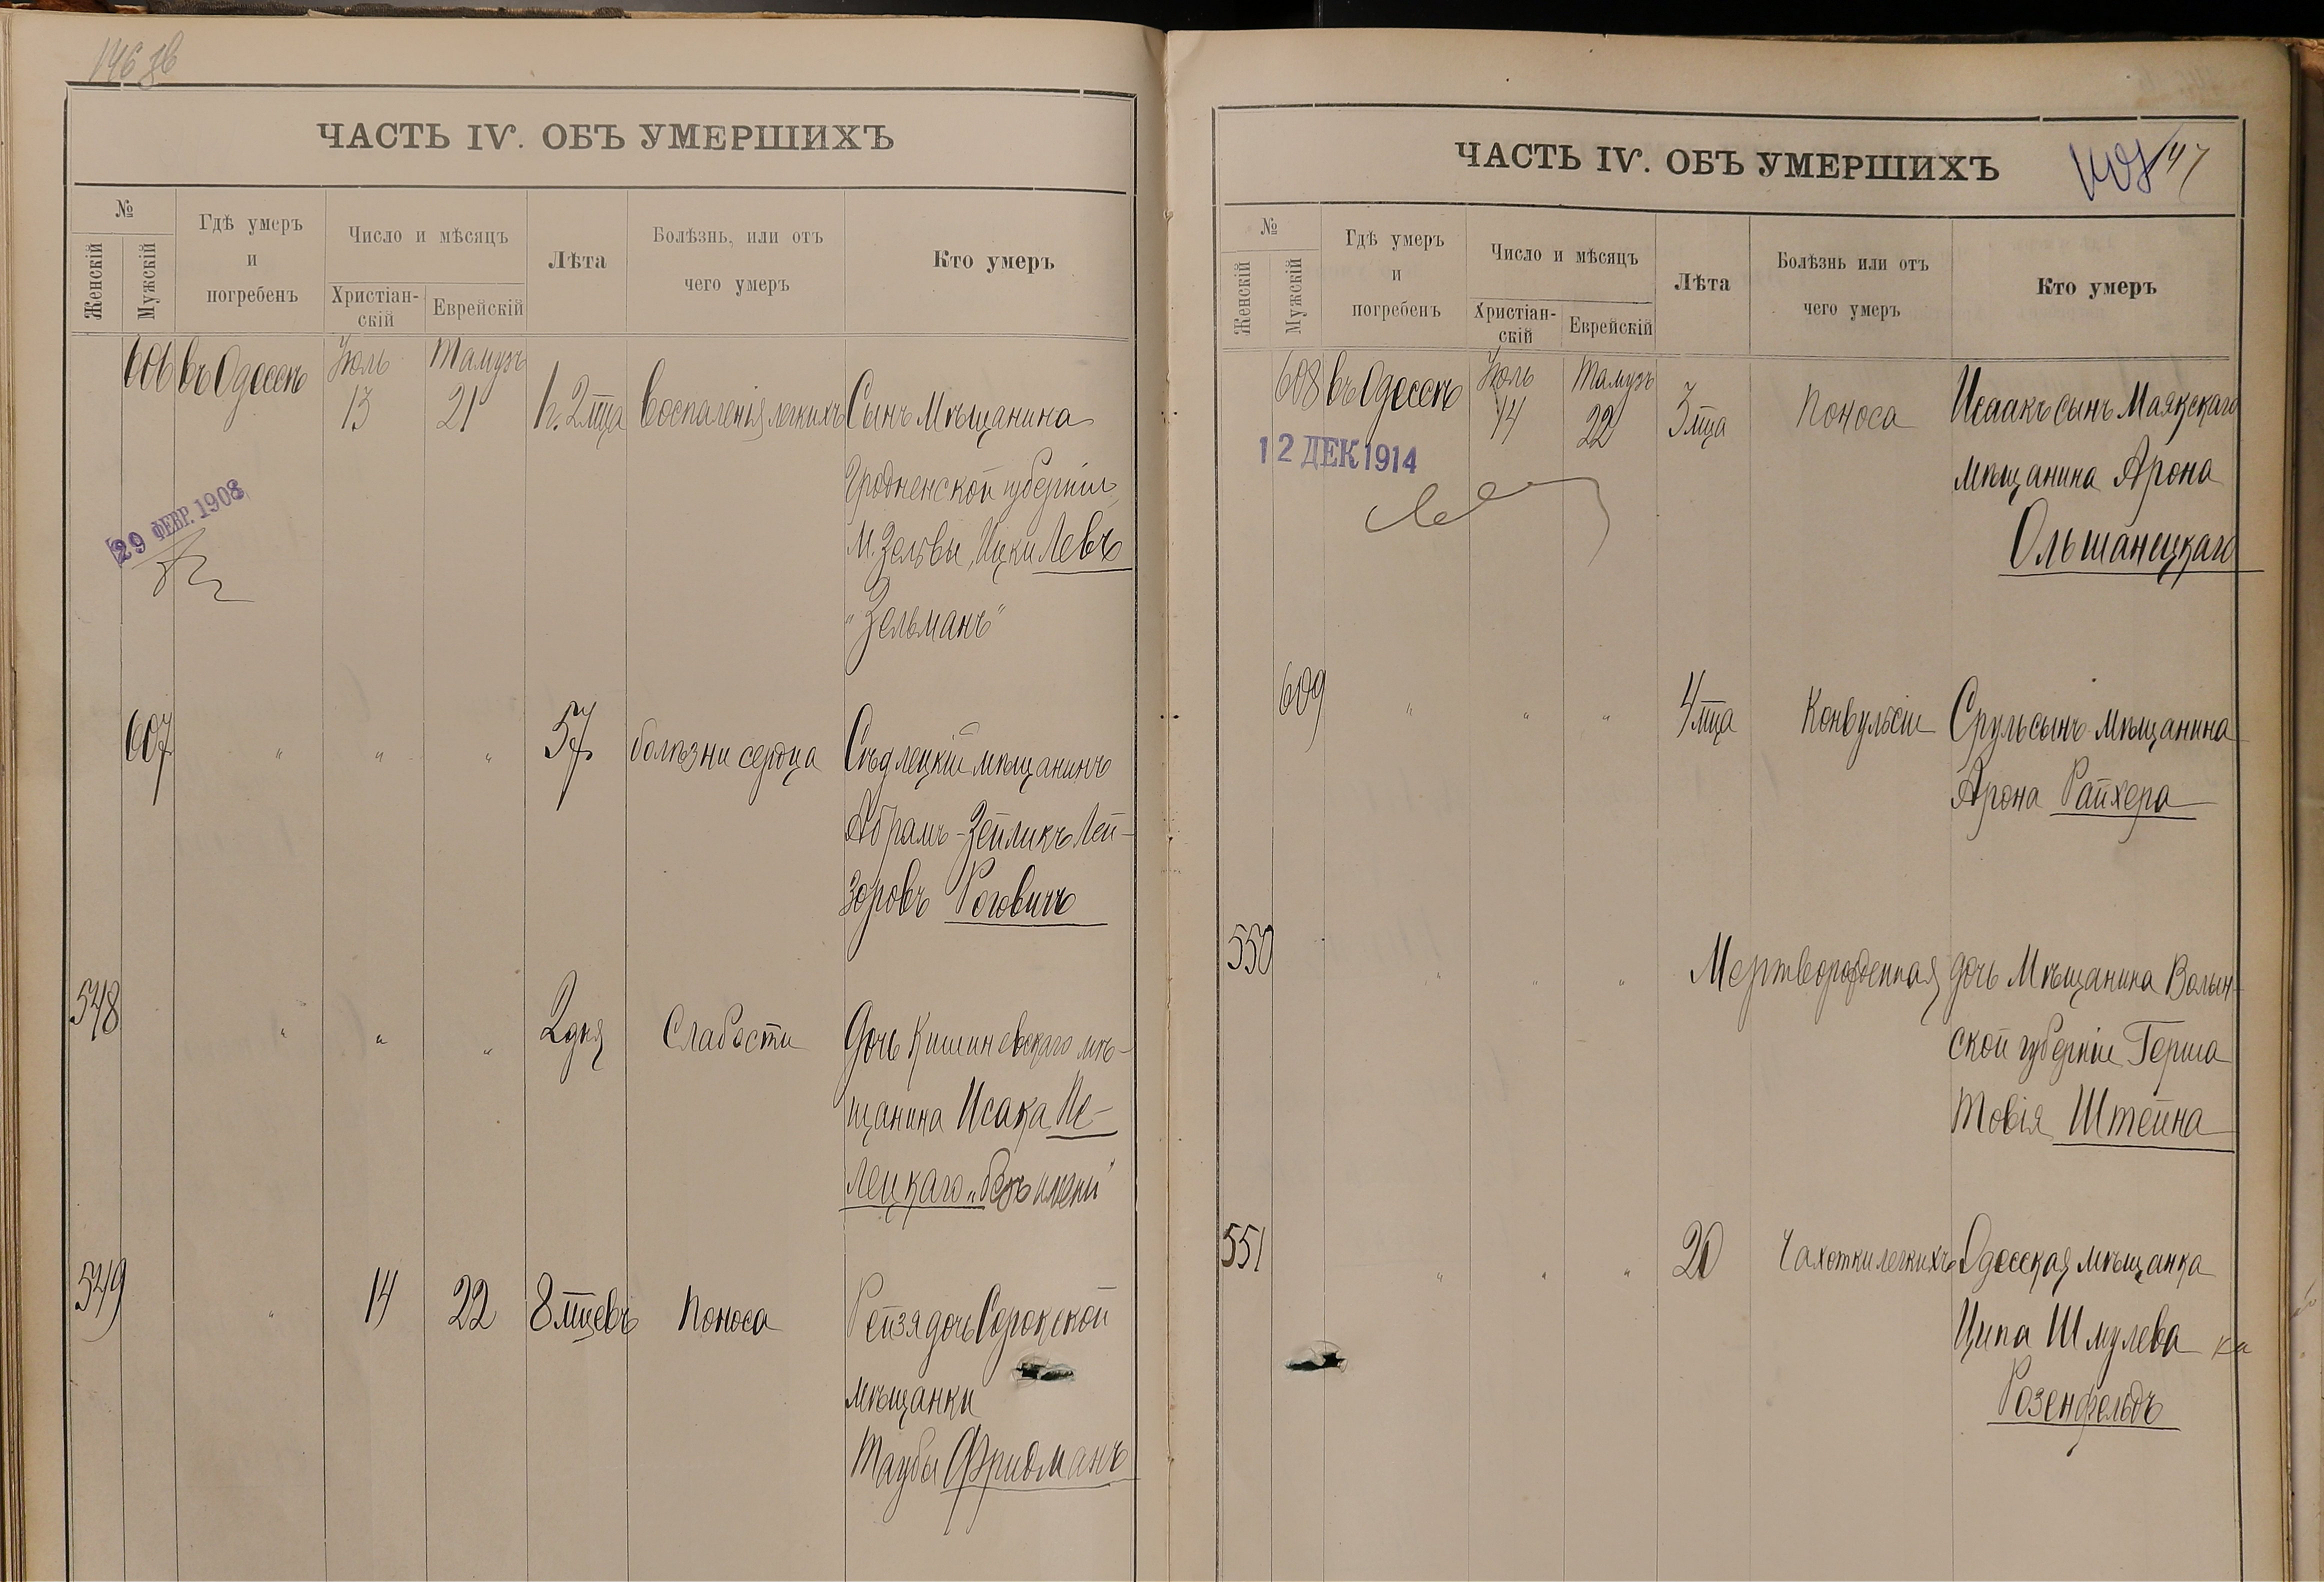 146 зв
ЧАСТЬ IV. ОБЪ УМЕРШИХЪ
№
Женскій
Мужскій
Гдѣ умеръ
и
погребенъ
Число и мѣсяцъ
Христіан-
скій
Еврейскій
Лѣта
Болѣзнь, или отъ
чего умеръ
Кто умеръ
606 въ Одессѣ Іюль 13 Тамузъ 21 2 мца Воспаленія легкихъ Сынъ Мѣщанина
Гродненской губерніи
М. Зельвы, Ицки Левъ
"Зельманъ"
29 ФЕВР. 1908
607 " " " 57 болѣзни сердца Сѣдлецкій мѣщанинъ
Абрамъ-Зейликъ Лей-
зоровъ Роговичъ
548 " " " 2 дня Слабости Дочь Кишиневскаго мѣ-
щанина Исака Пе-
лецкаго "безъ имени"
549 " 14 22 8 мцевъ Поноса Рейзя дочь Сорокской
мѣщанки
Таубы Фридманъ
ЧАСТЬ IV. ОБЪ УМЕРШИХЪ
147
№
Женскій
Мужскій
Гдѣ умеръ
и
погребенъ
Число и мѣсяцъ
Христіан-
скій
Еврейскій
Лѣта
Болѣзнь или отъ
чего умеръ
Кто умеръ
608 въ Одессѣ Іюль 14 Тамузъ 22 3 мца Поноса Исаакъ сынъ Маякскаго
мѣщанина Арона
Ольшанецкаго
12 ДЕК 1914
609 " " " 4 мца Конвульсіи Сруль сынъ мѣщанина
Арона Райхера
550 " " " Мертворожденная дочь Мѣщанина Волын-
ской губерніи Герша
Товія Штейна
551 " " " 20 Чахотки легкихъ Одесская мѣщанка
Ципа Шмулева ка
Розенфельдъ